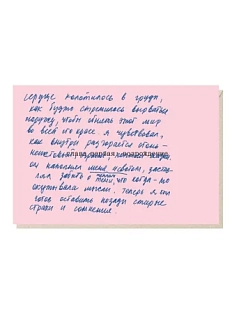 сердце колотилось в груди,
как будто стремилось вырваться
наружу, чтобы обнять этот мир
во всей его красе. я чувствовал,
как внутри разгорается огонь -
глава первая: возрождение
он наполнял меня светом, застав-
лял забыть о тени, что когда-то
окутывала мысли. теперь я был
готов оставить позади старые
страхи и сомнения.